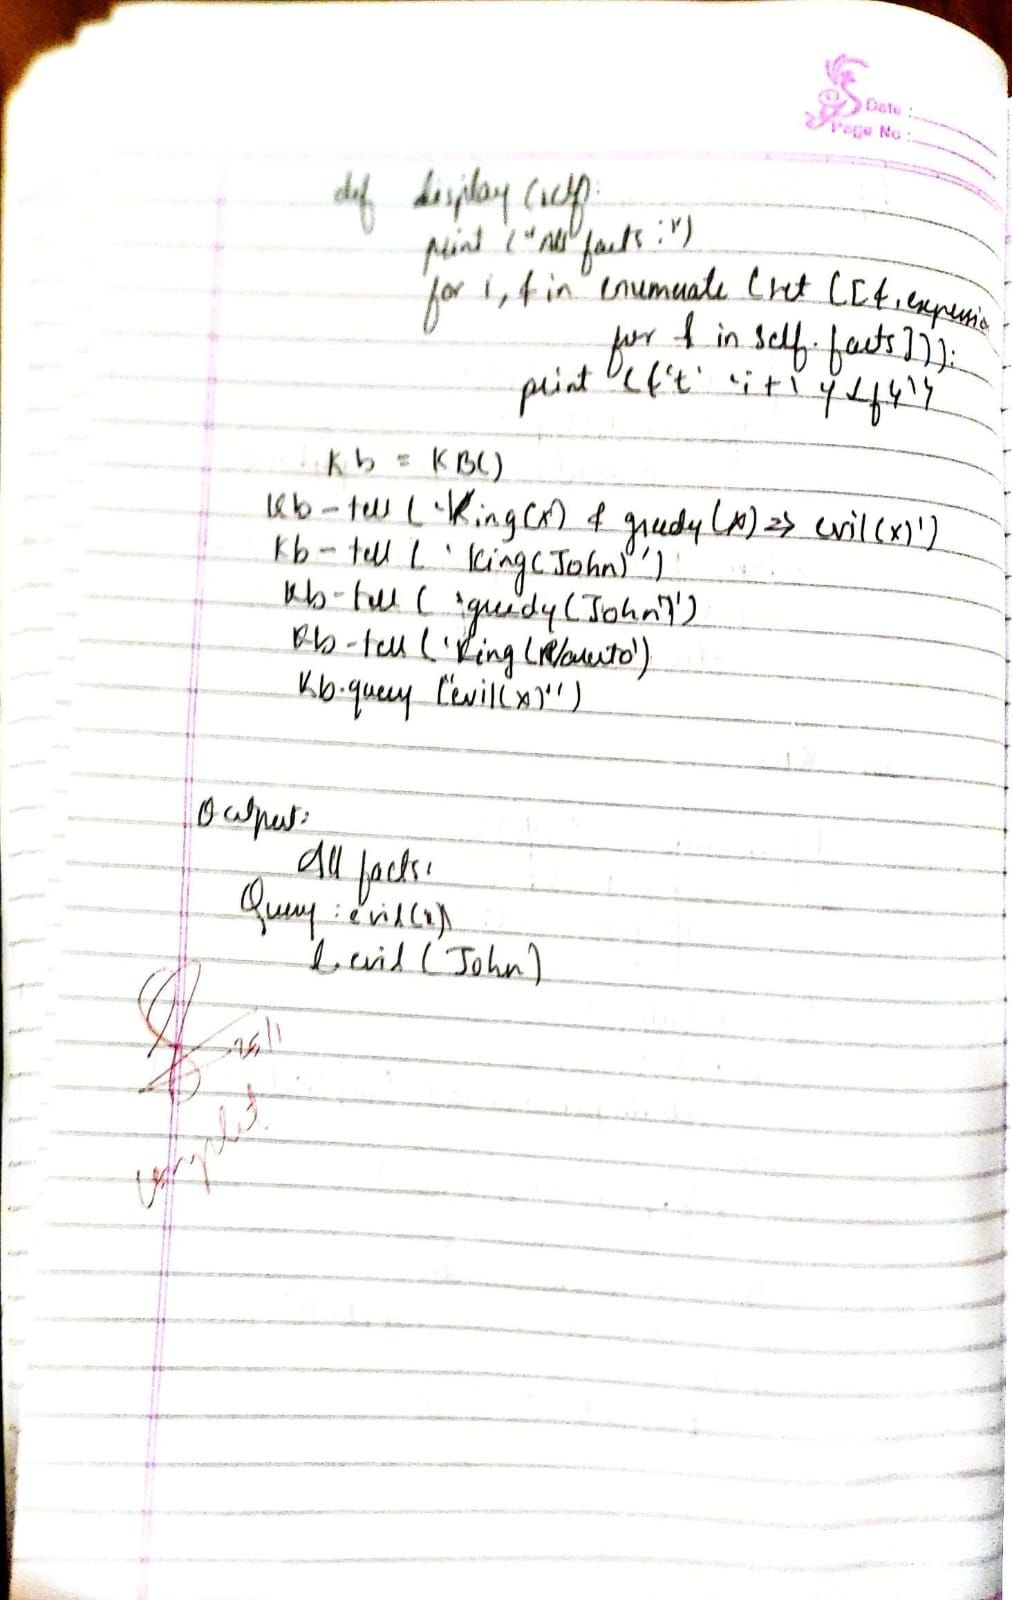 Date :
Page No :
def display (self):
print ("All facts :")
for i, f in enumerate (set ([f.expressio
for f in self.facts])):
print (f't' {i+1} {f}')
Kb = KB()
Kb-tell ('King(x) & greedy(x) => evil(x)')
Kb-tell ( 'King(John)')
Kb-tell ( 'greedy(John)')
Kb-tell ('King(Richard')
Kb.query ("evil(x)")
Output:
All facts:
Query : evil(x)
1. evil (John)
25/1